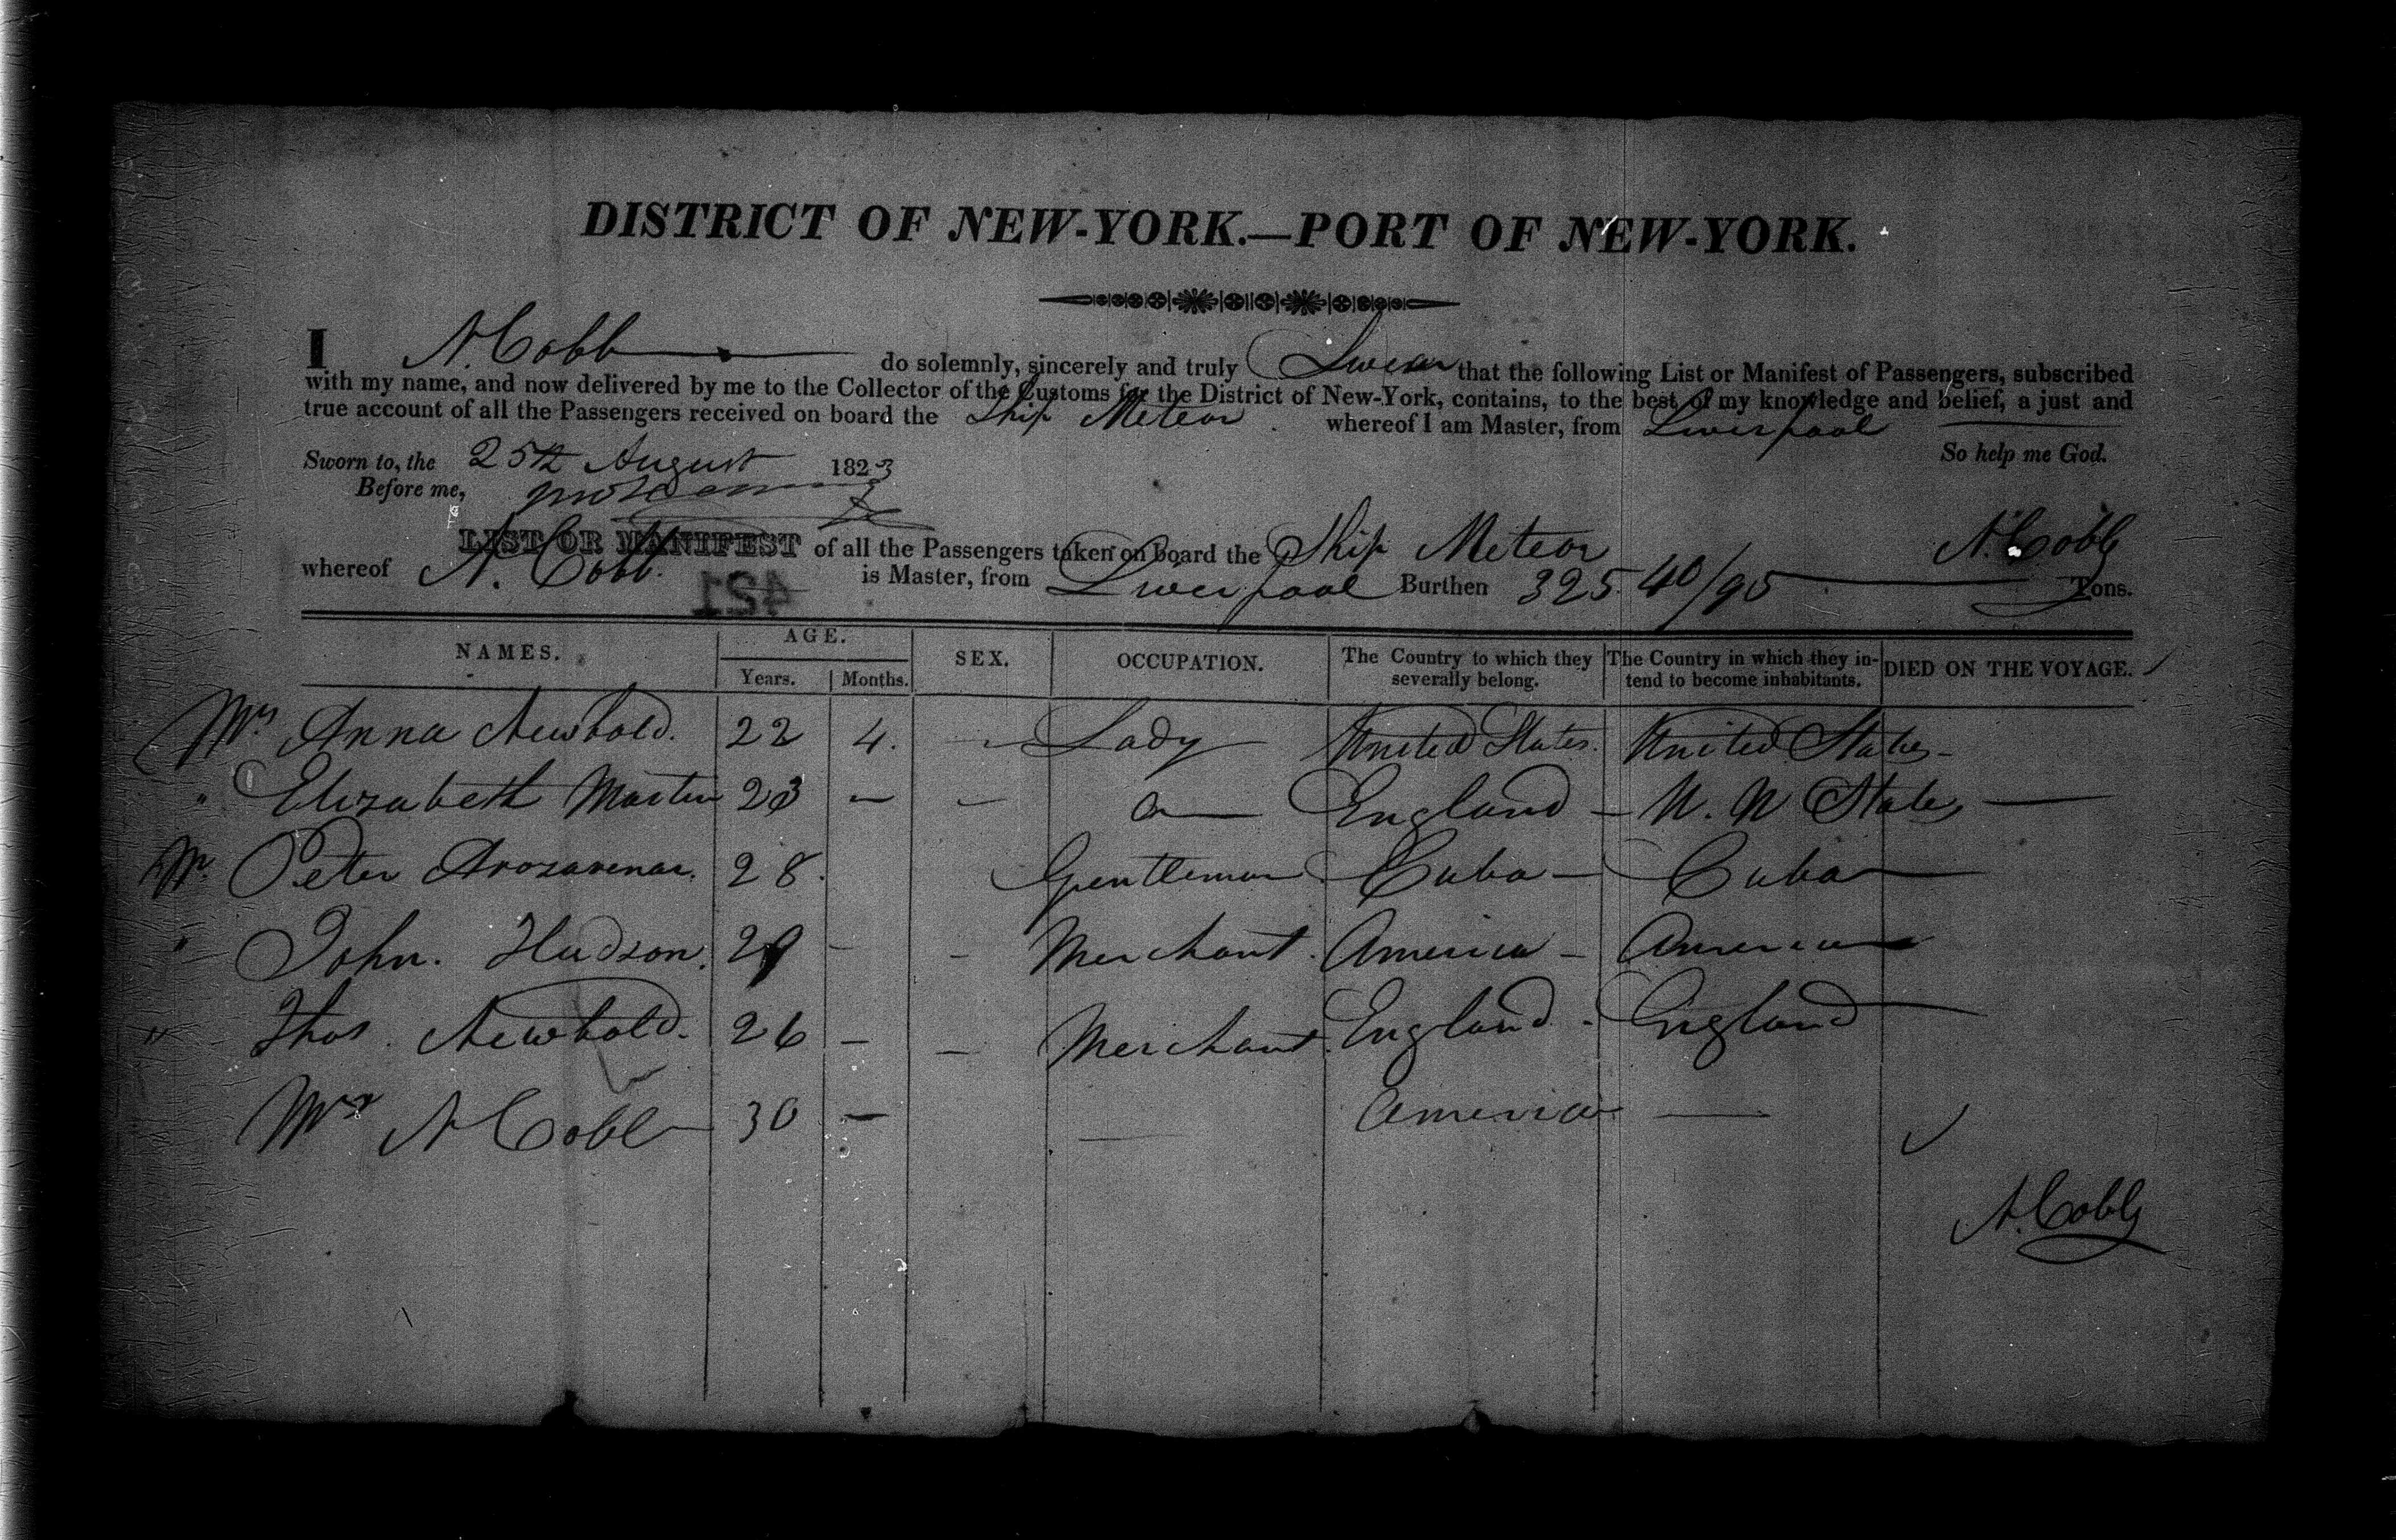 DISTRICT OF NEW-YORK.—PORT OF NEW-YORK.
I N. Cobb do solemnly, sincerely and truly Swear that the following List or Manifest of Passengers, subscribed
with my name, and now delivered by me to the Collector of the Customs for the District of New-York, contains, to the best of my knowledge and belief, a just and
true account of all the Passengers received on board the Ship Meteor whereof I am Master, from Liverpool
So help me God.
Sworn to, the 25th August 1823
Before me,
N. Cobb
LIST OR MANIFEST of all the Passengers taken on board the Ship Meteor
whereof N. Cobb. is Master, from Liverpool Burthen 325. 40/95 Tons.
421
NAMES. AGE. Years. Months. SEX. OCCUPATION. The Country to which they severally belong. The Country in which they intend to become inhabitants. DIED ON THE VOYAGE.
Mrs Anna Newbold. 22 4. — Lady United States. United States —
" Elizabeth Martin 23 — — England — U. N States —
Mr. Peter 28. Gentleman Cuba — Cuba —
" John. Hudson. 29 — — Merchant. America — America
" Thos. Newbold. 26 — — Merchant. England. England —
Mrs N Cobb 30 — — America —
N. Cobb